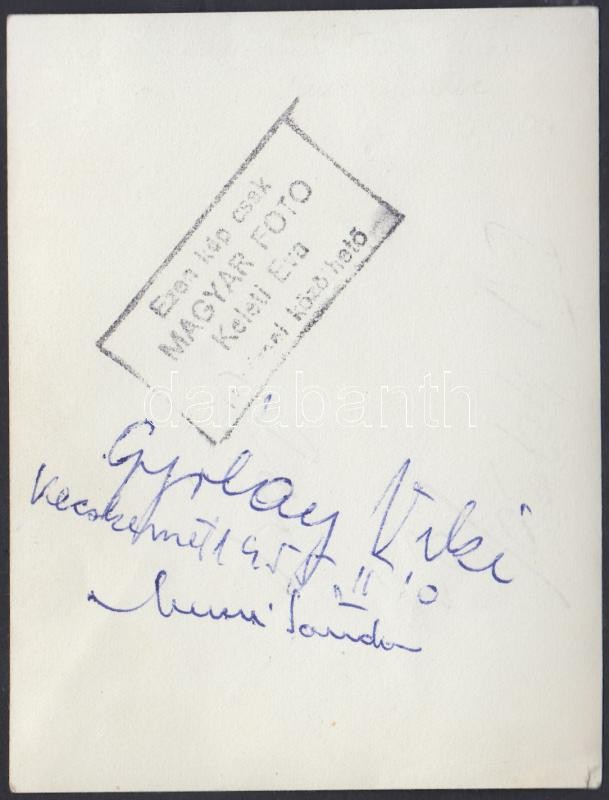 Ezen kép csak
MAGYAR FOTO
Keleti Éva
közölhető
darabanth
Gyolay Viki
Kecskemét 195 II 10
Sándor